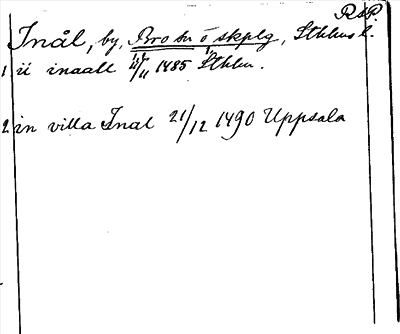 RSP.
Inål, by, Bro sn o skplg, Sthlms l.
1 ii inaall 11/11 1485 Sthlm.
2 in villa Inal 21/12 1490 Uppsala